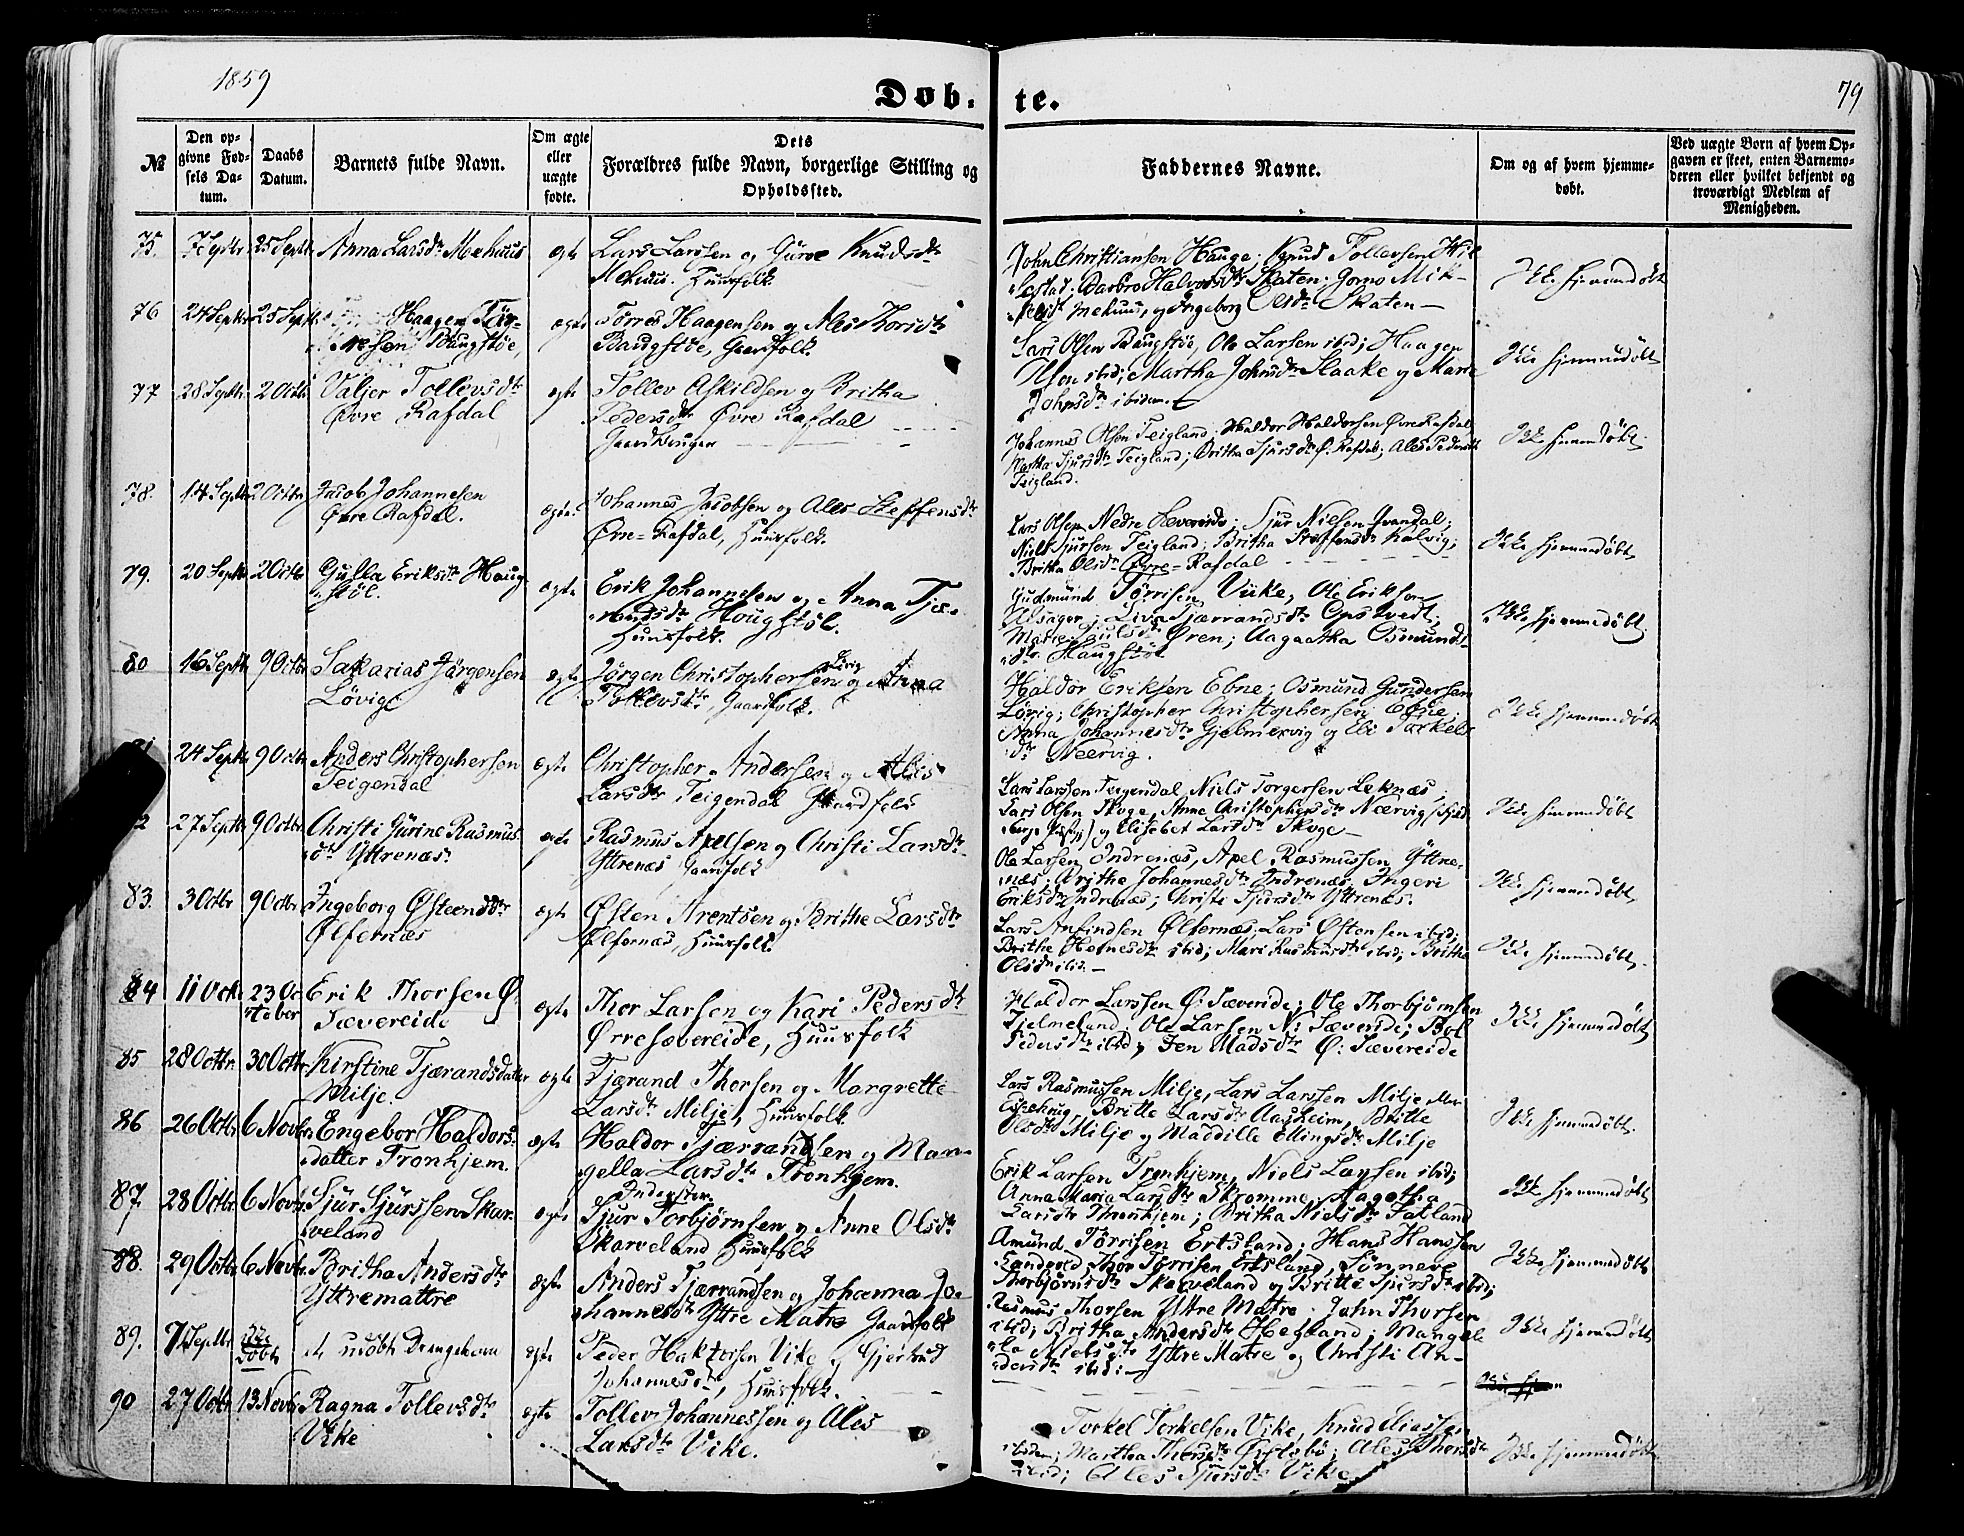 1859
Døb-
te.
79
№
Den op-
givne Fød-
sels Da-
tum.
Daabs
Datum.
Barnets fulde Navn.
Om ægte
eller
uægte
fødte.
Dets
Forældres fulde Navn, borgerlige Stilling og
Opholdssted.
Faddernes Navne.
Om og af hvem hjemme-
døbt.
Ved uægte Børn af hvem Op-
gaven er skeet, enten Barnemo-
deren eller hvilket bekjendt og
troværdigt Medlem af
Menigheden.
75. 7 Septbr 25 Septbr Anna Larsdtr Mehuus ægte
Lars Larssen og Gurve Knudsdtr
Mehuus. Huusfolk
John Christiansen Hauge; Knud Tollevsen
Barbro Halvorsdtr Skaten;
Mehuus, og Ingeborg Olsdtr Skaten
Ikke hjemmedøbt
76 24 Septbr 25 Septbr Haagen Tør-
resen Baugstøe,
ægte
Torres Haagensen og Ales Thorsdtr
Baugstøe, Gaardfolk
Lars Olsen Baugstøe, Ole Larsen ibid; Haagen
Olsen ibid; Martha Johnsdtr Slaake og Marie
Johnsdtr ibidem.
Ikke hjemmedøbt
77 28 Septbr 2 Octbr Valjer Tollevsdtr
Øvre Rafdal
ægte
Tollev Askildsen og Britha
Pedersdtr Øvre Rafdal
Gaardbruger
Johannes Olsen Teigland; Haldor Haldorsen Øvre Rafdal
Martha Sjursdtr Teigland; Britha Sjursdtr Ø. Rafdal; Ales Pedersdtr
Teigland.
Ikke hjemmedøbt.
78. 14 Septbr 2 Octbr Jacob Johannesen
Øvre Rafdal.
ægte
Johannes Jacobsen og Ales Steffensdtr
Øvre-Rafdal, Huusfolk.
Lars Olsen Nedre Sævereide; Sjur Nielsen Kvandal;
Niels Sjursen Teigland; Britha Steffensdtr Kalvig;
Britha Olsdtr Øvre-Rafdal
Ikke hjemmedøbt
79. 20 Septbr 2 Octbr Gulla Eriksdtr Haug-
støl.
ægte
Erik Johannesen og Anna Tjæ-
randsdtr Hougstøl.
Huusfolk.
Gudmund Tørrisen Viike, Ole Eriksen
Liva Tjærrandsdtr Opstvedt;
Øren; Aagaatha Osmunds-
dtr. Haugstøl
Ikke hjemmedøbt.
80 16 Septbr 9 Octbr Sakarias Jørgensen
Løvig
ægte
Jørgen Christophersen Løvig og Anna
Tollevsdtr, Gaardfolk.
Haldor Eriksen Ebne; Osmund Gundersen
Løvig; Christopher Christophersen Ebne;
Anna Johannesdtr Gjelmervig og Eli Torkels-
dtr Neervig.
Ikke hjemmedøbt
24 Septbr 9 Octbr Anders Christophersen
Teigendal
ægte
Christopher Andersen og Ales
Larsdtr Teigendal Gaardfolk
Lars Larssen Teigendal, Niels Torgersen Leknæs;
Lars Olsen Skoge, Anna Christophersdtr Neervig
og Elisabet Larsdtr Skoge
Ikke hjemmedøbt
27 Septbr 9 Octbr Christi Gurine Rasmus-
dtr Yttrenæs
ægte
Rasmus Axelsen og Christi Larsdtr
Yttrenæs Gaardfolk
Ole Larsen Indrenæs, Axel Rasmussen Yttre-
næs; Brithe Johannesdtr Indrenæs, Ingeri
Eriksdtr Indrenæs; Christi Sjursdtr Yttrenæs.
Ikke hjemmedøbt
83. 3 Octbr 9 Octbr Ingeborg Østensdtr
Ølfernæs
ægte
Østen Arentsen og Brithe Larsdtr
Ølfernæs, Huusfolk.
Lars Anfindsen Ølfernæs, Lars Østensen ibid;
Brithe ibid; Mari Rasmusdtr ibid; Brithe
Olsdtr ibid.
Ikke hjemmedøbt.
84 11 Oct. 23 Oc-
tober
Erik Thorsen Ø:
Sævereide
ægte
Thor Larsen og Kari Pedersdtr
Øvresævereide, Huusfolk
Haldor Larssen Ø: Sævereide; Ole Thorbjørnsen
Tjelmeland; Ole Larsen N: Sævereide;
Pedersdtr ibid; Madsdtr Ø: Sævereide
Ikke hjemmedøbt
85 28 Octbr. 30 Octbr Kirstine Tjærandsdatter
Milje.
ægte
Tjærand Thorsen og Margrette
Larsdtr Milje, Huusfolk.
Lars Rasmussen Milje, Lars Larssen Milje
Espehoug, Britte Larsdtr Aasheim, Britte
Olsdtr Milje og Maddille Ellingsdtr Milje
Ikke hjemmedøbt.
86 26 Octbr 6 Novbr Engebor Haldors-
datter Tronhjem.
ægte
Haldor Tjærrandsen og Man-
gella Larsdtr Tronhjem.
Inderster
Erik Larsen Tronhjem, Niels Larsen ibid;
Anna Maria Larsdtr Skromme; Aagotha
Larsdtr Thronhjem; Britha Nielsdtr Fatland
Ikke hjemmedøbt
87. 28 Octbr. 6 Novbr Sjur Sjurssen Skar-
veland
ægte
Sjur Torbjørnsen og Anne Olsdtr
Skarveland Huusfolk
Amund Tørrisen Ertsland; Hans Hanssen
Sandvold, Thor Tørrisen Ertsland, Sønneve
Thorbjørnsdtr Skarveland og Britte Sjursdtr ibid;
Ikke hjemmedøbt
88. 29 Octbr 6 Novbr. Britha Andersdtr
Yttremattre
ægte
Anders Tjærrandsen og Johanna Jo-
hannesdtr Yttre Matre Gaardfolk
Rasmus Thorsen Yttre Matre; John Thorsen
ibid; Britha Andersdtr Hegland; Mangele
Nielsdtr Yttre Matre og Christi An-
dersdtr ibid:
Ikke hjemmedøbt
89. 7 Septbr
Døbt
et udøbt Drengebarn ægte
Peder Haktorsen Vike og Gjertrud
Johannesdtr, Huusfolk.
90 27 Octbr 13 Novbr Ragna Tollevsdtr
Vike
ægte
Tollev Johannessen og Ales
Larsdtr Vike.
Torkel Torkelsen Vike, Knud Eliassen
ibidem; Martha Ales Thorsdtr
ibid; Ales Sjursdtr Vike
Ikke hjemmedøbt